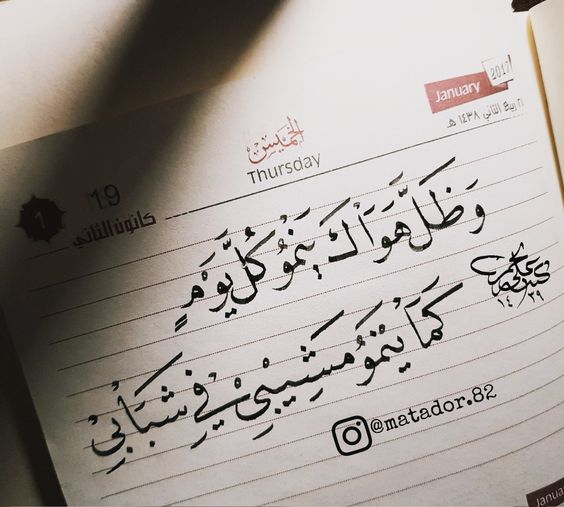 January 2017
ربيع الثاني ١٤٣٨ هـ
الخميس
Thursday
1 19
كانون الثاني
وَظَلَّ هَوَاكَ يَنْمُو كُلَّ يَوْمٍ
كَمَا يَنْمُو مَشِيْبِيْ فِيْ شَبَابِيْ
١٤ ٣٩
@matador.82
Janua